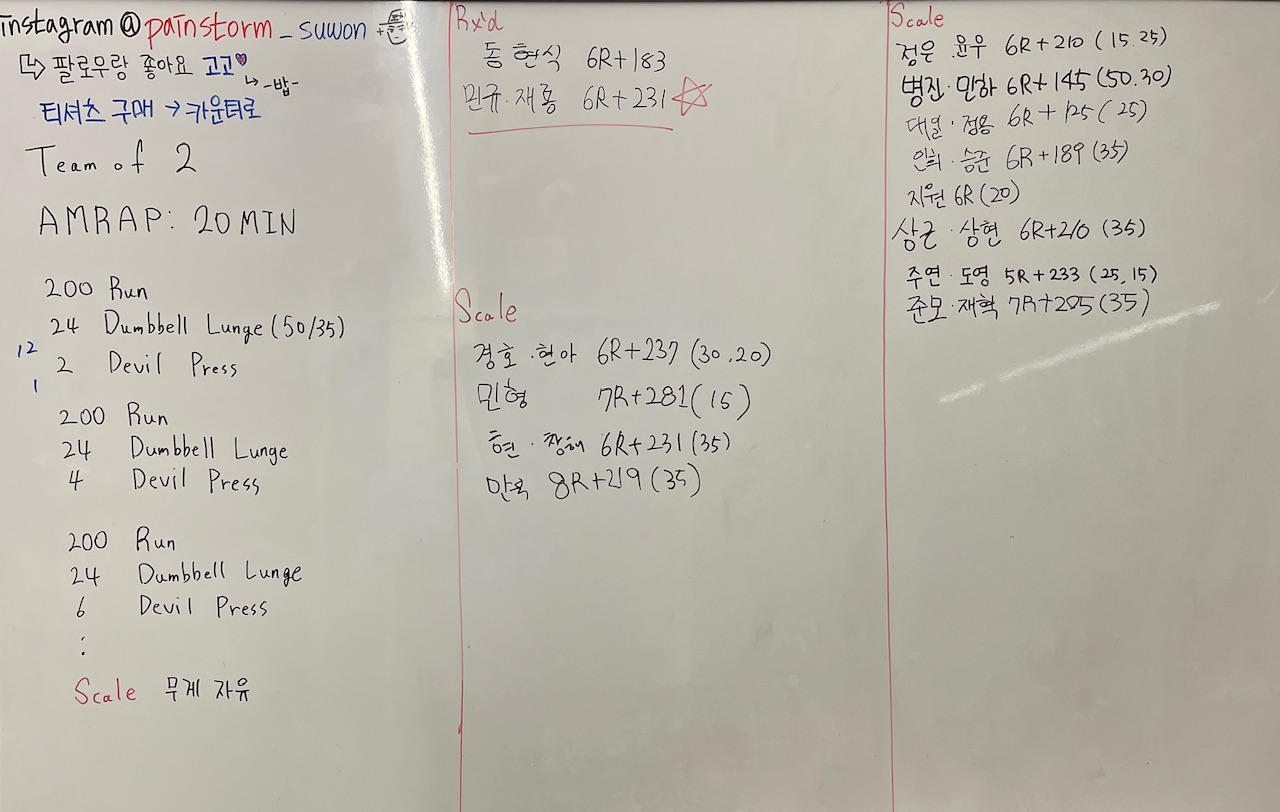 instagram@painstorm_suwon
↳ 팔로우랑 좋아요 고고♥
↳ -밥-
티셔츠 구매 → 카운터로
Team of 2
AMRAP: 20 MIN
200 Run
24 Dumbbell Lunge (50/35)
12
2 Devil Press
1
200 Run
24 Dumbbell Lunge
4 Devil Press
200 Run
24 Dumbbell Lunge
6 Devil Press
:
Scale 무게 자유
Rx'd
동 현식 6R+183
민규·재룡 6R+231 ☆
Scale
경호·현아 6R+237 (30.20)
민형 7R+281 (15)
현·창해 6R+231 (35)
만옥 8R+219 (35)
Scale
정은·윤우 6R+210 (15.25)
병진·민하 6R+145 (50.30)
대일·정용 6R+125 (25)
인희·승준 6R+189 (35)
지원 6R (20)
상근·상현 6R+210 (35)
주연·도영 5R+233 (25,15)
준모·재혁 7R+205 (35)